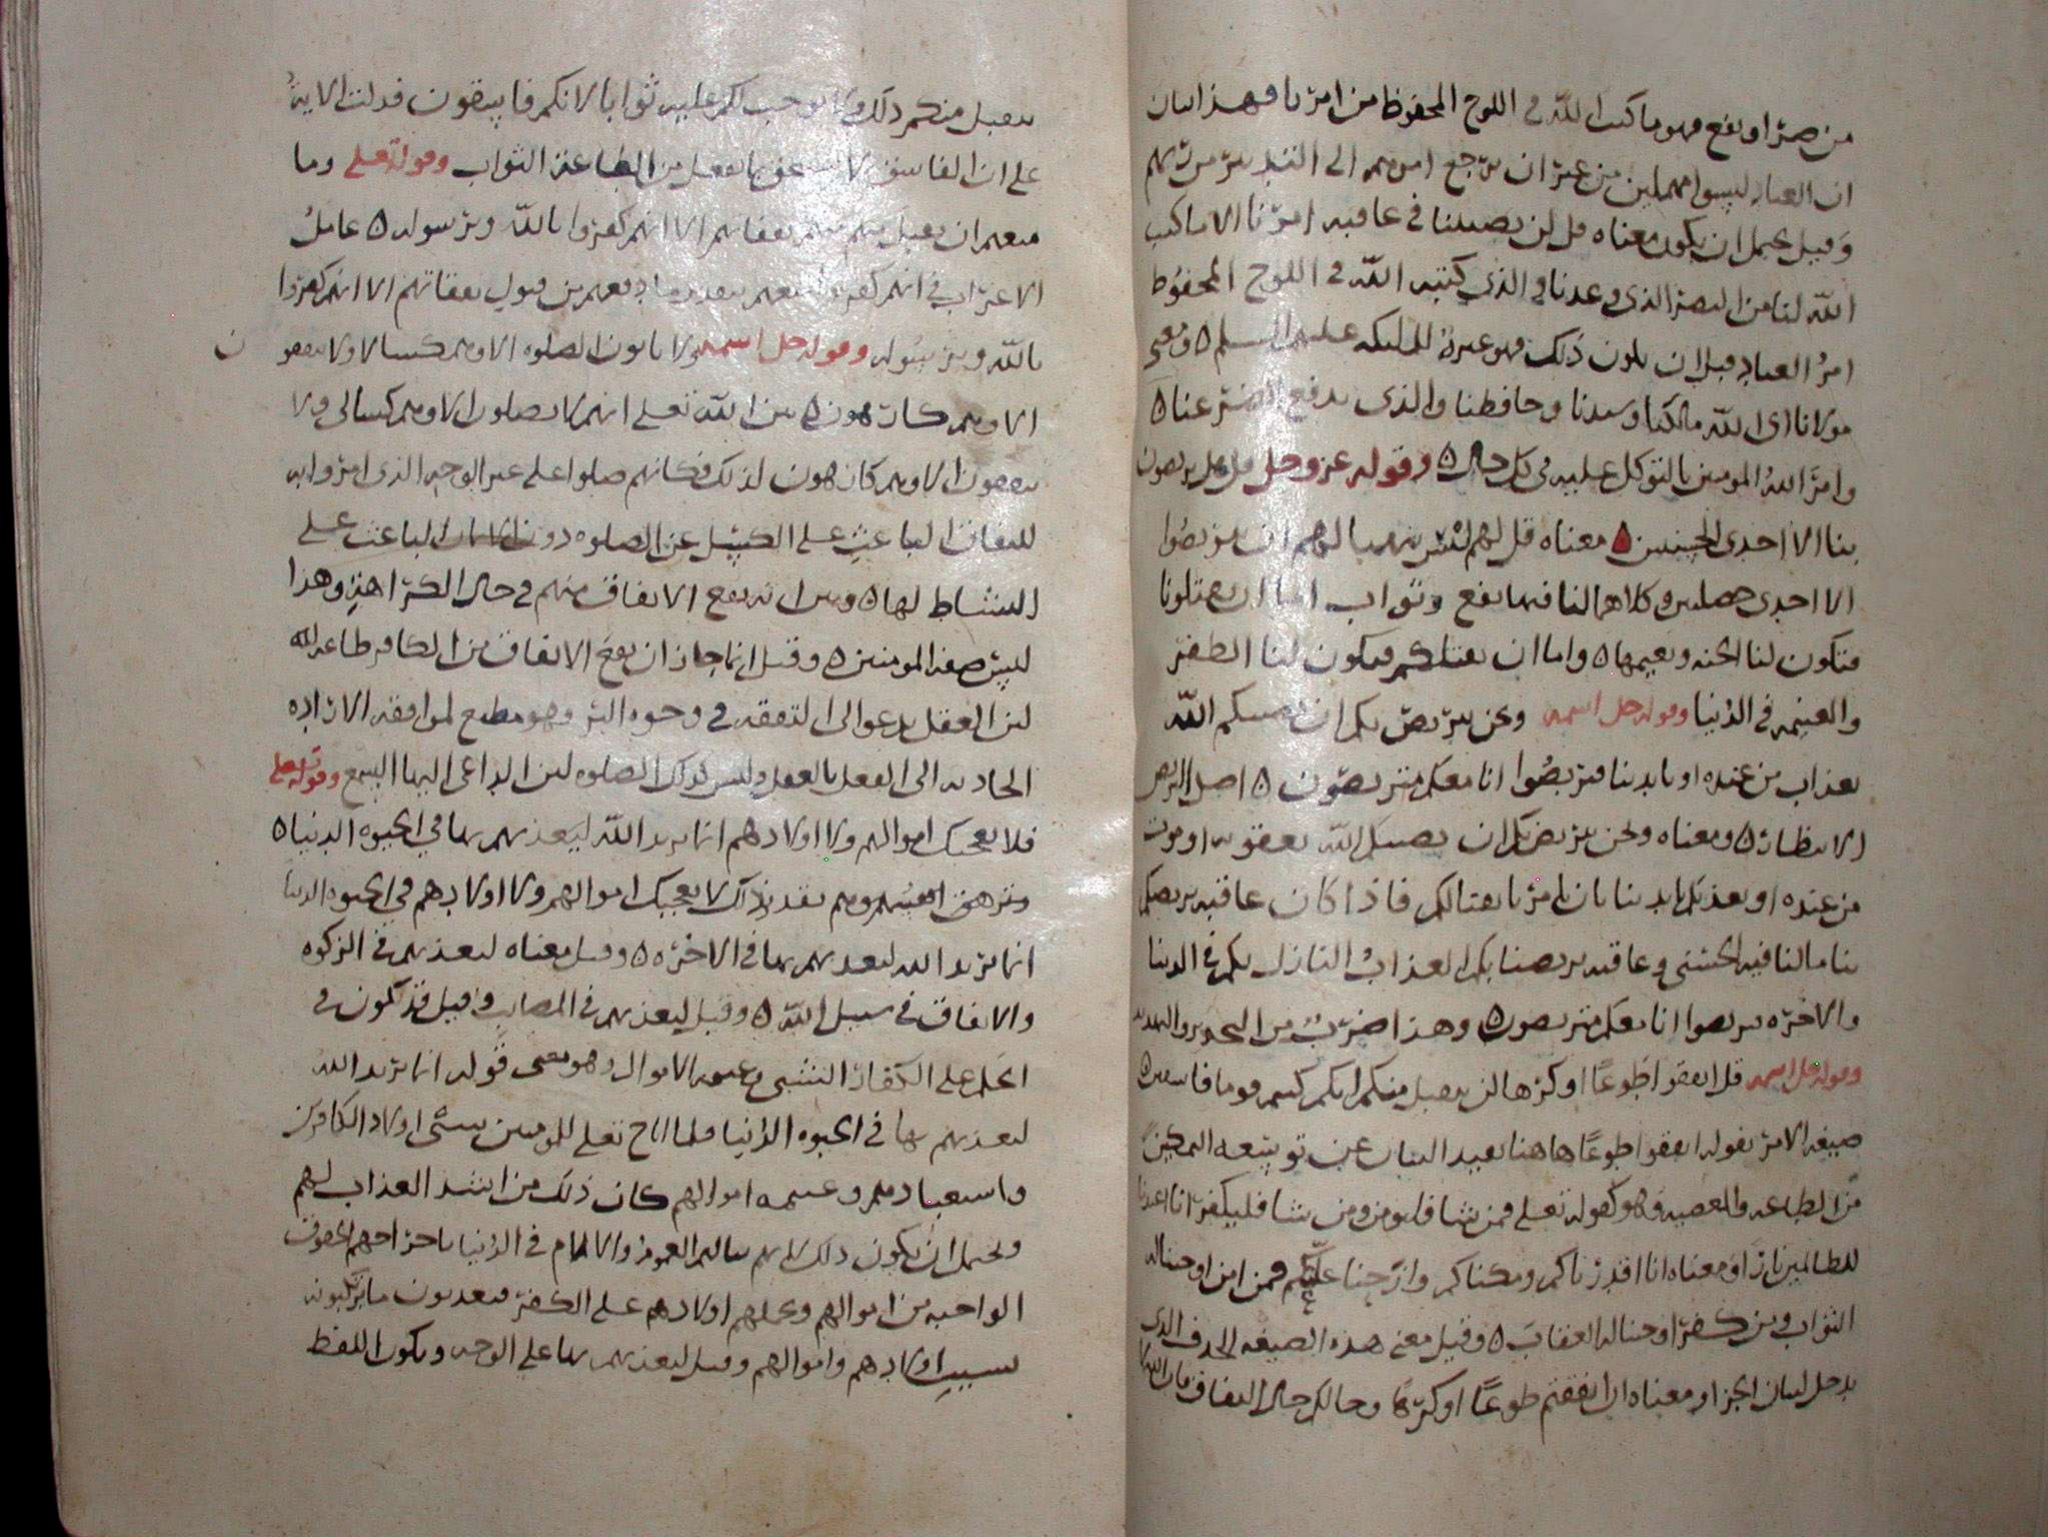 من ضر او نفع فهو ما كتب الله في اللوح المحفوظ من امرنا فهذا بيان
ان العباد ليسوا مهملين من غير ان يرجع امرهم الى التدبير من ربهم
وقيل يحتمل ان يكون معناه قل لن يصيبنا في عاقبه امرنا الا ما كتب
الله لنا من النصر الذي وعدنا والذي كتبه الله في اللوح المحفوظ
امر العباد قبل ان يكون ذلك فهو عبرة للملئكه عليهم السلم ه ومعنى
مولانا اى الله مالكنا وسيدنا وحافظنا والذى يدفع الضر عنا ه
وامر الله المومنين بالتوكل عليه في كل حال ه وقوله عز وجل قل هل تربصون
بنا الا احدى الحسنيين ه معناه قل لهم انتم بمنزلة ان تربصوا
الا احدى خصلتين وكلاهما لنا فيهما نفع وثواب اما ان تقتلونا
فتكون لنا الجنه ونعيمها ه واما ان نقتلكم فيكون لنا الظفر
والغنيمه في الدنيا وقوله جل اسمه ونحن نتربص بكم ان يصيبكم الله
بعذاب من عنده او بايدينا فتربصوا انا معكم متربصون ه اصل التربص
الانتظار ه ومعناه ونحن نتربص بكم ان يصيبكم الله بعقوبه او موت
من عنده او بعذبكم بايدينا بان يامرنا بقتالكم فاذا كان عاقبه تربصكم
بنا ما لنا فيه الحسنى وعاقبه تربصنا بكم العذاب النازل بكم في الدنيا
والاخره تربصوا انا معكم متربصون ه وهذا ضرب من التحذير والتهديد
وقوله جل اسمه قل انفقوا طوعًا او كرها لن يتقبل منكم انكم كنتم قوما فاسقين ه
صيغه الامر بقوله انفقوا طوعًا هاهنا تفيد البيان عن توسعه التمكين
من الطاعه والمعصيه وهو كقوله تعلى فمن شا فليومن ومن شا فليكفر انا اعتدنا
للظالمين نارا ومعناه انا اقدرناكم ومكناكم وازحنا عللكم فمن امن اوجبنا له
الثواب ومن كفر اوجبنا له العقاب ه وقيل معنى هذه الصيغه الحرف الذى
يدخل لبيان الجزا ومعناه ان انفقتم طوعًا او كرها وحالكم حال النفاق فان الله لا
يتقبل منكم ذلك ولا يوجب لكم عليه ثوابا لانكم فاسقون فدلت الايه
على ان الفاسق لا يستحق بما يفعل من الطاعة الثواب وقوله تعلى وما
منعهم ان تقبل منهم نفقاتهم الا انهم كفروا بالله وبرسوله ه عامل
الاعراب في انهم كفروا منعهم تقديره ما منعهم من قبول نفقاتهم الا انهم كفروا
بالله وبرسوله وقوله جل اسمه ولا ياتون الصلوه الا وهم كسالا ولا ينفقون
الا وهم كارهون ه بين الله تعلى انهم لا يصلون الا وهم كسالى ولا
ينفقون الا وهم كارهون لذلك فكانهم صلوا على غير الوجه الذى امروا به
للنفاق الباعث على الكسل عن الصلوه دون الايمان الباعث على
النشاط لها ه وبين انه يقع الانفاق منهم في حال الكراهة وهذا
ليس صفة المومنين ه وقيل انما جاز ان يقع الانفاق من الكافر طاعه لله
لان العقل يدعو الى النفقه في وجوه البر وهو مطيع لموافقه الاراده
الحادثه الى الفعل بالعقل وليس كذلك الصلوه لان الداعى اليها السمع وقوله تعلى
فلا تعجبك اموالهم ولا اولادهم انما يريد الله ليعذبهم بها في الحيوه الدنيا ه
وتزهق انفسهم وهم تقديره ذلك لا يعجبك اموالهم ولا اولادهم في الحيوه الدنيا
انما يريد الله ليعذبهم بها في الاخره ه وقيل معناه ليعذبهم في الزكوه
والانفاق في سبيل الله ه وقيل ليعذبهم في المصايب وقيل قد تكون في
الحمل على الكفار السبى وغنيمه الاموال وهو معنى قوله انما يريد الله
ليعذبهم بها في الحيوه الدنيا فلما اباح تعلى للمومنين سبى اولاد الكافرين
واستعبادهم وغنيمه اموالهم كان ذلك من اشد العذاب لهم
ويحتمل ان يكون ذلك في الدنيا باخراجهم الحقوق
الواجبه من اموالهم وبحملهم اولادهم على الكفر فيعذبون ما يرتكبونه
بسبب اولادهم واموالهم وقيل ليعذبهم بها على الوجه ويكون اللفظ